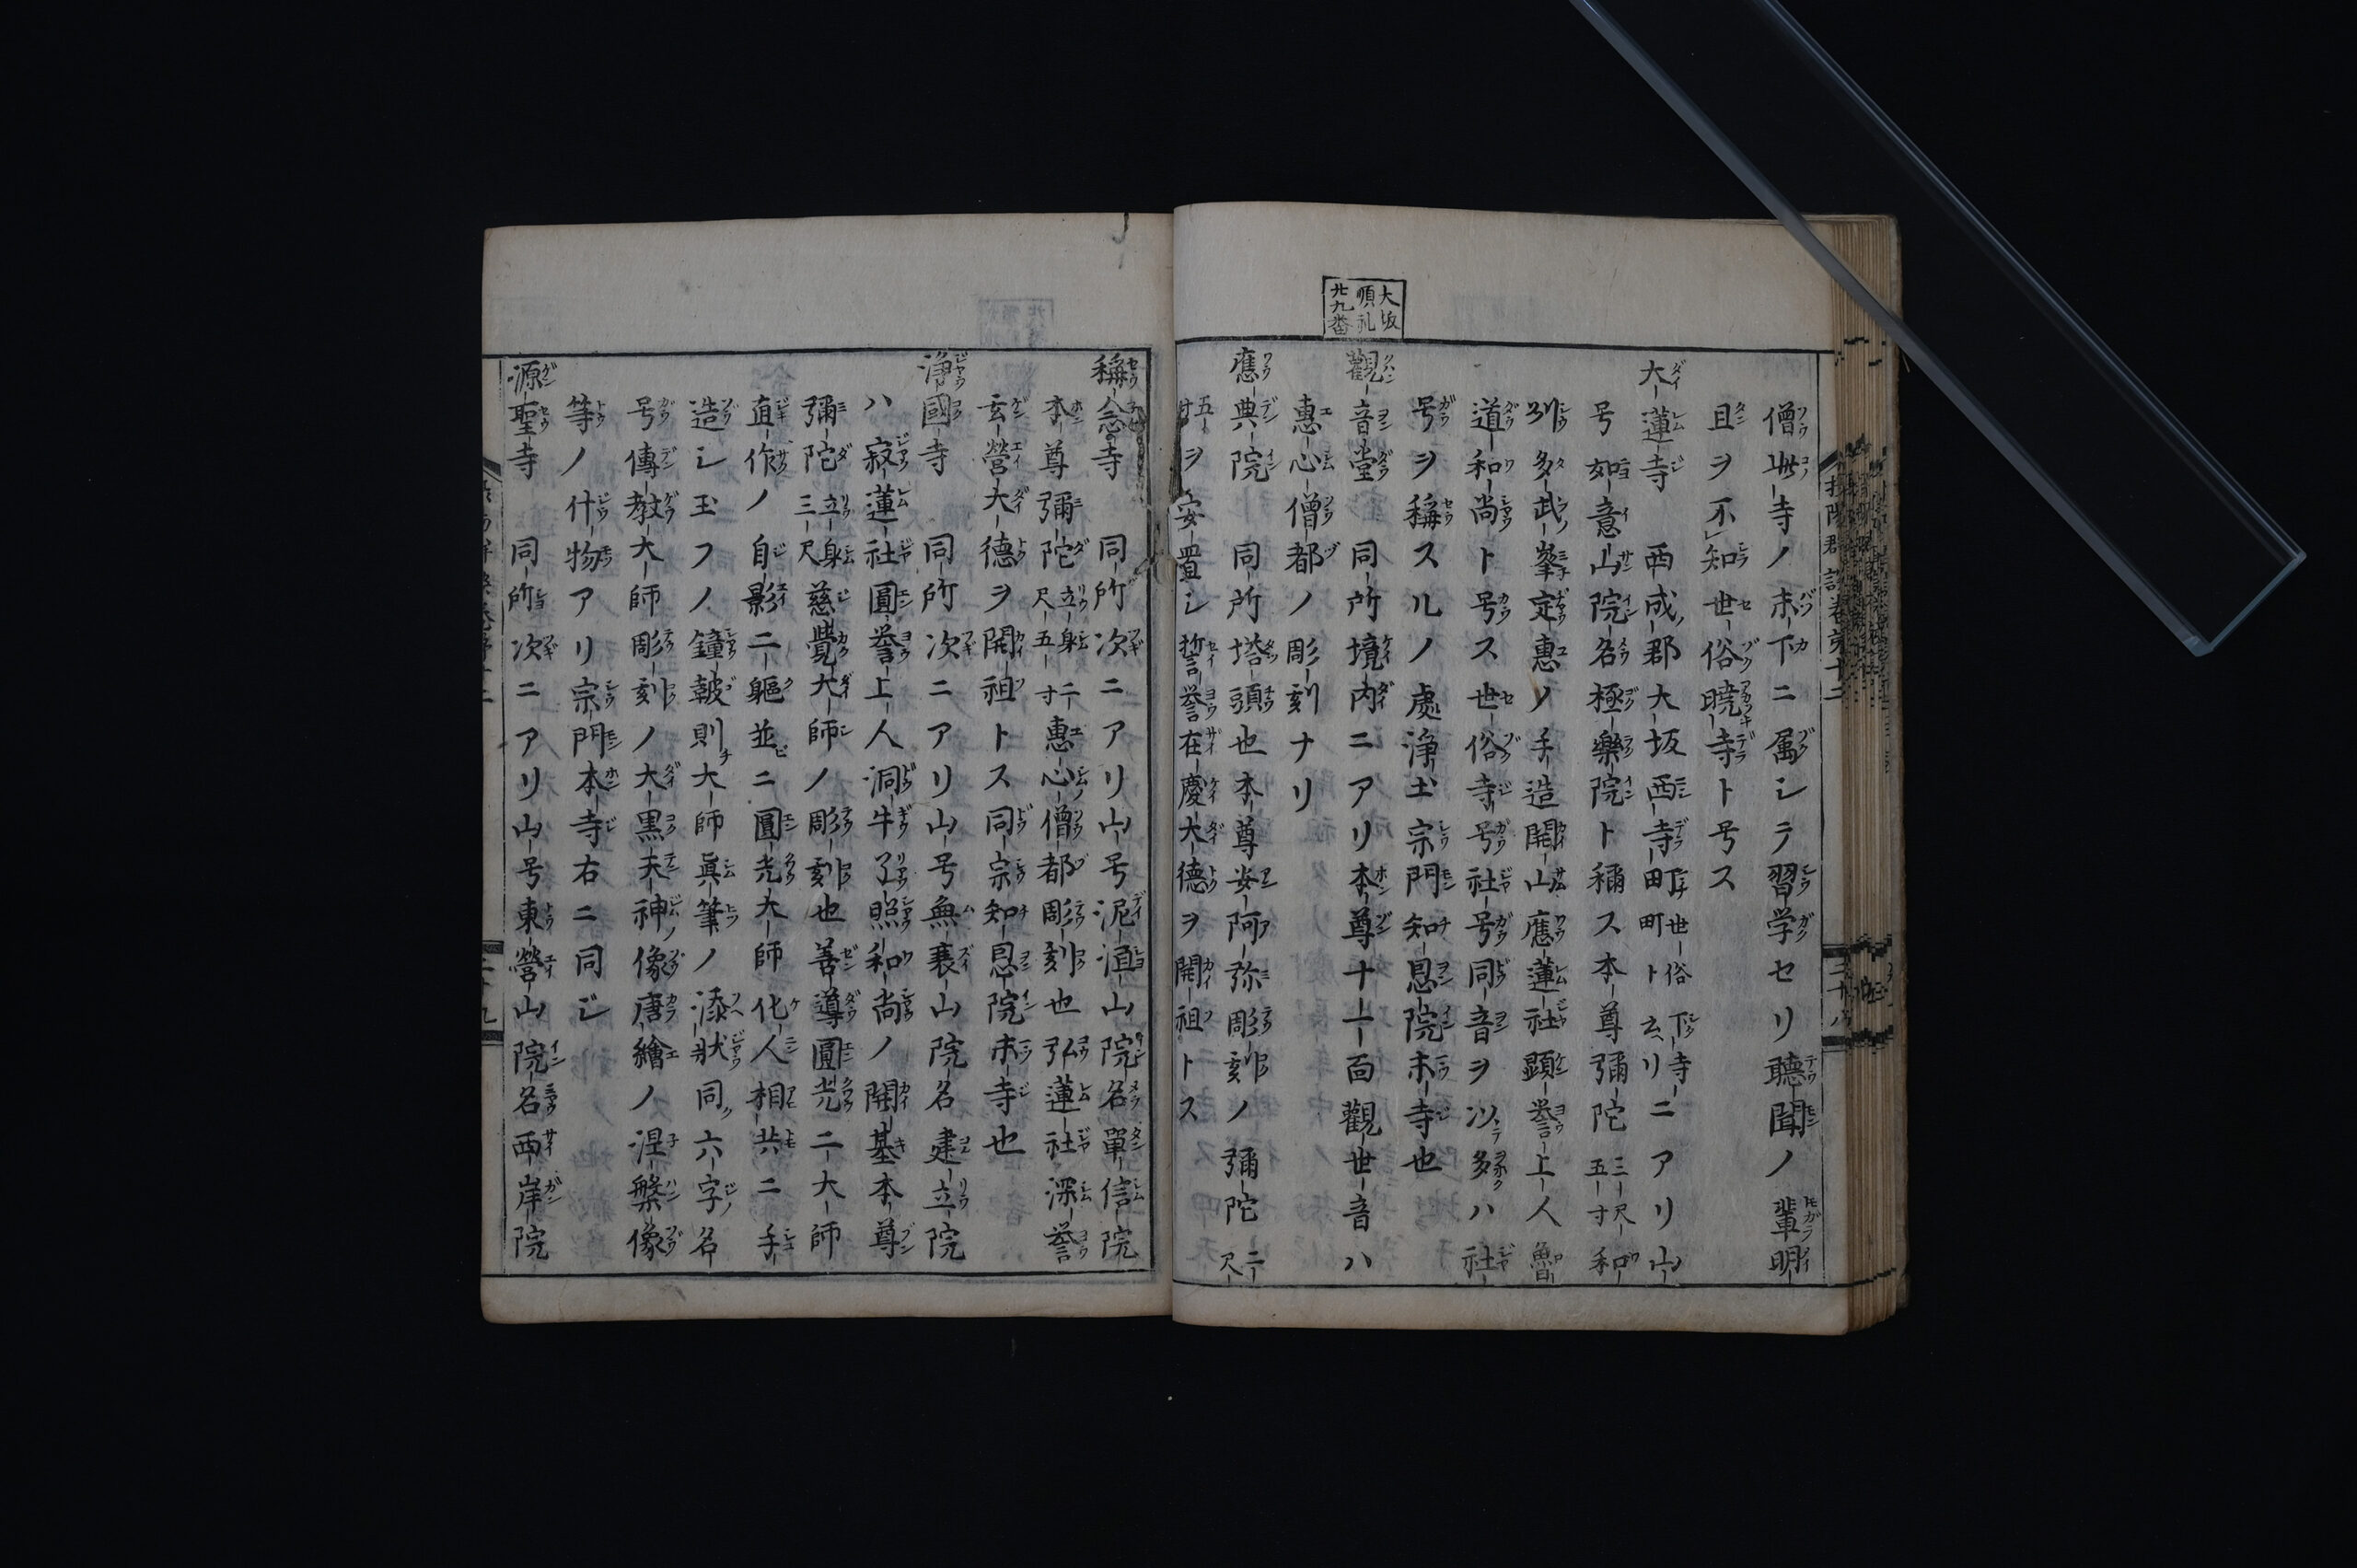 大坂
順礼
廿九番
僧此寺ノ末下ニ属シテ習学セリ聴聞ノ輩明
且ヲ不知世俗暁寺ト号ス
大蓮寺 西成郡大坂西寺町世俗下寺町ト云リニアリ山
号如意山院名極樂院ト稱ス本尊彌陀三尺五寸和
州多武峯定惠ノ手造開山應蓮社顕誉上人魯
道和尚ト号ス世俗寺号社号同音ヲ以多ハ社
号ヲ稱スルノ處浄土宗門知恩院末寺也
觀音堂 同所境内ニアリ本尊十一面觀世音ハ
惠心僧都ノ彫刻ナリ
應典院 同所塔頭也本尊安阿弥彫刻ノ彌陀二尺
五寸ヲ安置シ誓誉在慶大徳ヲ開祖トス
稱念寺 同所次ニアリ山号泥洹山院名單信院
本尊彌陀立身二尺五寸惠心僧都彫刻也弘蓮社深誉
玄營大徳ヲ開祖トス同宗知恩院末寺也
浄國寺 同所次ニアリ山号無衰山院名建立院
ハ寂蓮社圓誉上人洞牛了照和尚ノ開基本尊
彌陀立身三尺慈覺大師ノ彫刻也善導圓光二大師
直作ノ自影二軀並ニ圓光大師化人相共ニ手
造シ玉フノ鐘皷則大師眞筆ノ添狀同六字名
号傳教大師彫刻ノ大黒天神像唐繪ノ涅槃像
等ノ什物アリ宗門本寺右ニ同シ
源聖寺 同所次ニアリ山号東營山院名西岸院